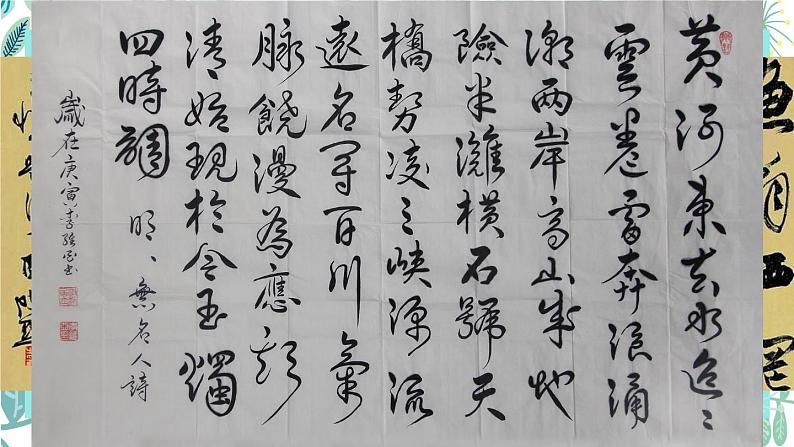 黄河東去水迢〻
雲卷雷奔浪涌
潮两岸高山成地
險半灘横石號天
橋勢凌三峡源流
遠名冠百川氣
脉饒漫為應
清始現於今玉燭
四時調 明〻無名人詩
歲在庚寅李書